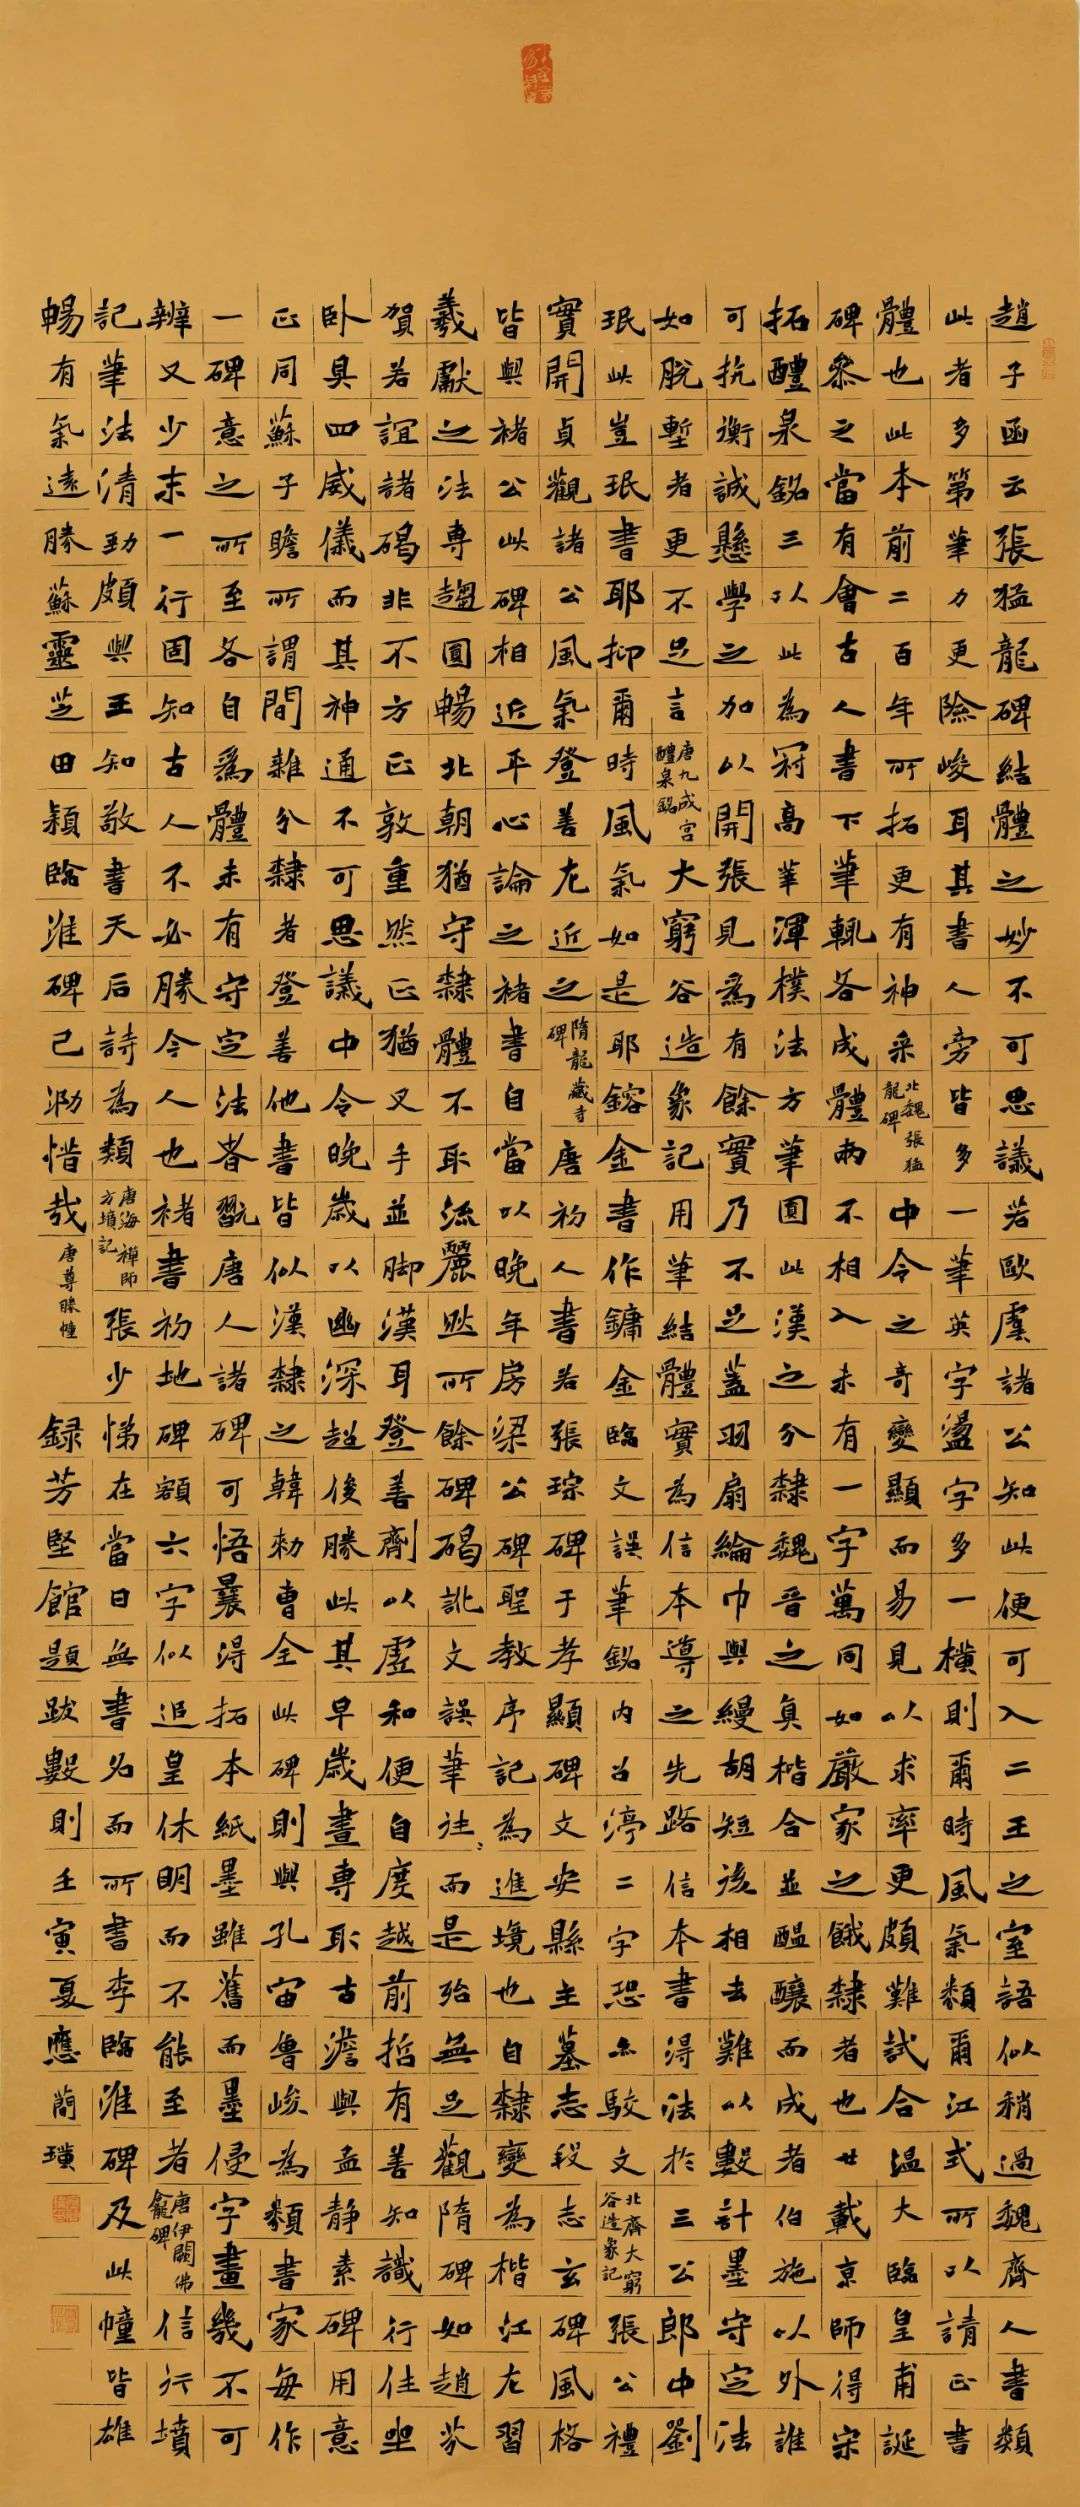 趙子函云張猛龍碑結體之妙不可思議若歐虞諸公知此便可入二王之室語似稍過魏齊人書類
此者多第筆力更險峻耳其書人旁皆多一筆英字盪字多一橫則爾時風氣類爾江式所以請正書
體也此本前二百年所拓更有神采北魏張猛龍碑中令之奇變顯而易見以求率更頗難試合溫大臨皇甫誕
碑叅之當有會古人書下筆輒各成體兩不相入未有一字萬同如嚴家之餓隸者也廿載京師得宋
拓醴泉銘三以此為冠高華渾樸法方筆圓此漢之分隸魏晉之真楷合並醞釀而成者伯施以外誰
可抗衡誠懸學之加以開張見為有餘實乃不足蓋羽扇綸巾與縵胡短後相去難以數計墨守定法
如脫塹者更不足言唐九成宮醴泉銘大窮谷造象記用筆結體實為信本導之先路信本書得法於三公郎中劉
珉此豈珉書耶抑爾時風氣如是耶鎔金書作鏞金臨文誤筆銘內召渟二字恐亦駮文北齊大窮谷造象記張公禮
實開貞觀諸公風氣登善尤近之隋龍藏寺碑唐初人書若張琮碑于孝顯碑文安縣主墓志段志玄碑風格
皆與褚公此碑相近平心論之褚書自當以晚年房梁公碑聖教序記為進境也自隸變為楷江左習
羲獻之法專趨圓暢北朝猶守隸體不取流麗然所餘碑碣訛文誤筆往〻而是殆無足觀隋碑如趙芬
賀若誼諸碣非不方正敦重然正猶叉手並脚漢耳登善劑以虛和便自度越前哲有善知識行住坐
卧具四威儀而其神通不可思議中令晚歲以幽深超後勝此其早歲畫專取古澹與孟靜素碑用意
正同蘇子瞻所謂間雜分隸者登善他書皆似漢隸之韓勑曹全此碑則與孔宙魯峻為類書家每作
一碑意之所至各自為體未有守定法者翫唐人諸碑可悟曩得拓本紙墨雖舊而墨侵字畫幾不可
辨又少末一行固知古人不必勝今人也褚書初地碑額六字似追皇休明而不能至者唐伊闕佛龕碑信行墳
記筆法清勁頗與王知敬書天后詩為類唐海禪師方墳記張少悌在當日無書名而所書李臨淮碑及此幢皆雄
暢有氣遠勝蘇靈芝田穎臨淮碑已泐惜哉唐尊勝幢錄芳堅館題跋數則壬寅夏應